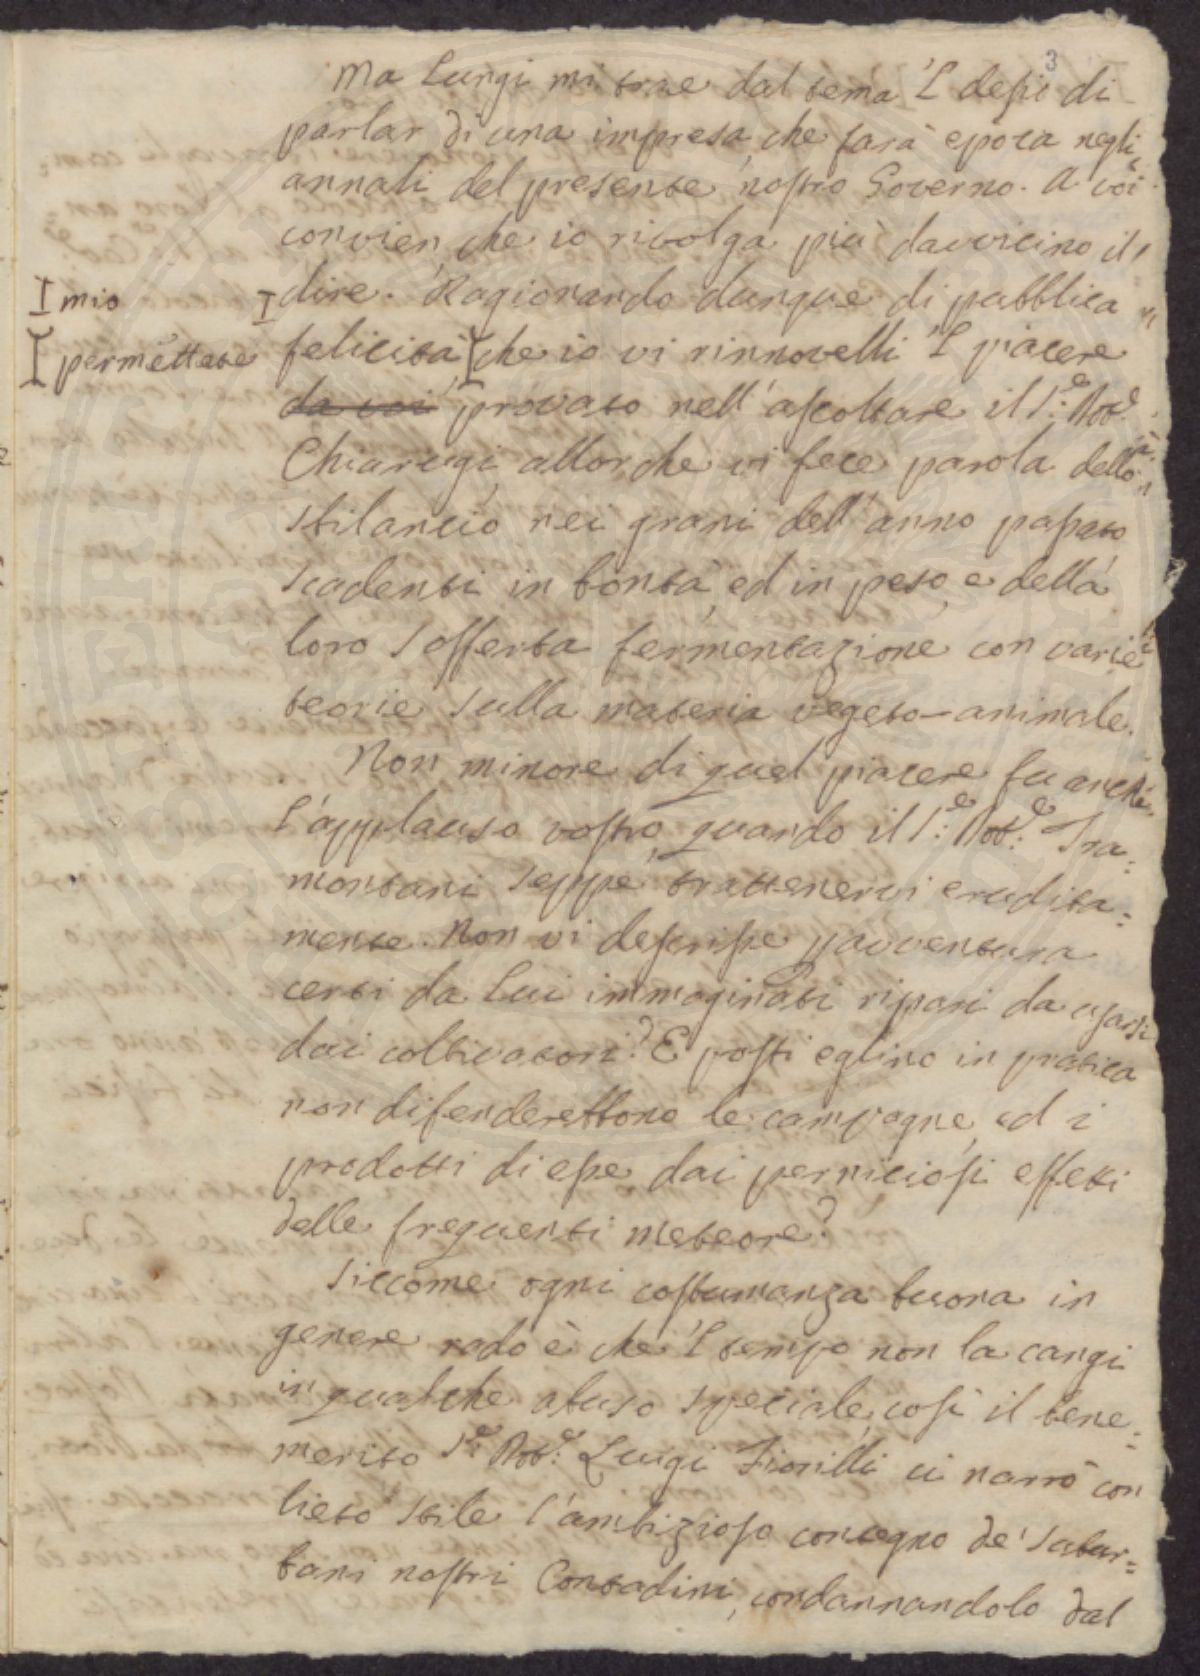 3
Ma lungi mi trae dal tema 'l desio di
parlar di una impresa, che farà epoca negli
annali del presente nostro Governo. A voi
convien, che io rivolga più davvicino il
mio
dire. Ragionando dunque di pubblica
permettete
felicità che io vi rinnovelli 'l piacere
da voi provato nell'ascoltare il S.e Dot.e
Chiarugi, allorche vi fece parola dello
sbilancio nei grani dell'anno passato
scadenti in bontà, ed in peso, e della
loro sofferta fermentazione, con varie
teorie sulla materia vegeto-animale.
Non minore di quel piacere fu anche
l'applauso vostro, quando il S.e Dot.e Tra=
montani seppe trattenervi erudita=
mente. Non vi descrisse, p avventura
certi da Lui immaginati ripari da usarsi
dai coltivatori? E posti eglino in pratica
non difenderebbono le campagne, ed i
prodotti di esse dai perniciosi effetti
delle frequenti meteore?
Siccome ogni costumanza buona in
genere rado è che 'l tempo non la cangi
in qualche abuso speciale, così il bene=
merito S.e Dot.e Luigi Fiorilli ci narrò con
lieto stile l'ambizioso contegno de' Subur=
bani nostri Contadini, condannandolo dal